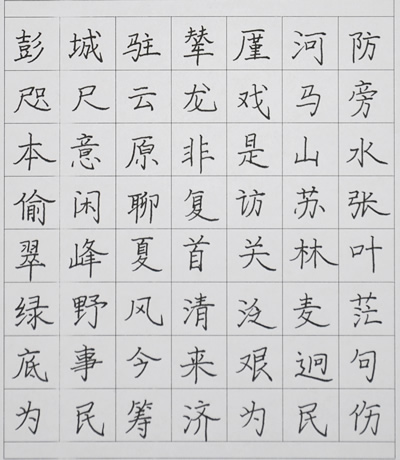 彭城驻辇厪河防
咫尺云龙戏马旁
本意原非是山水
偷闲聊复访苏张
翠峰夏首关林叶
绿野风清泛麦茫
底事今来艰迥句
为民筹济为民伤